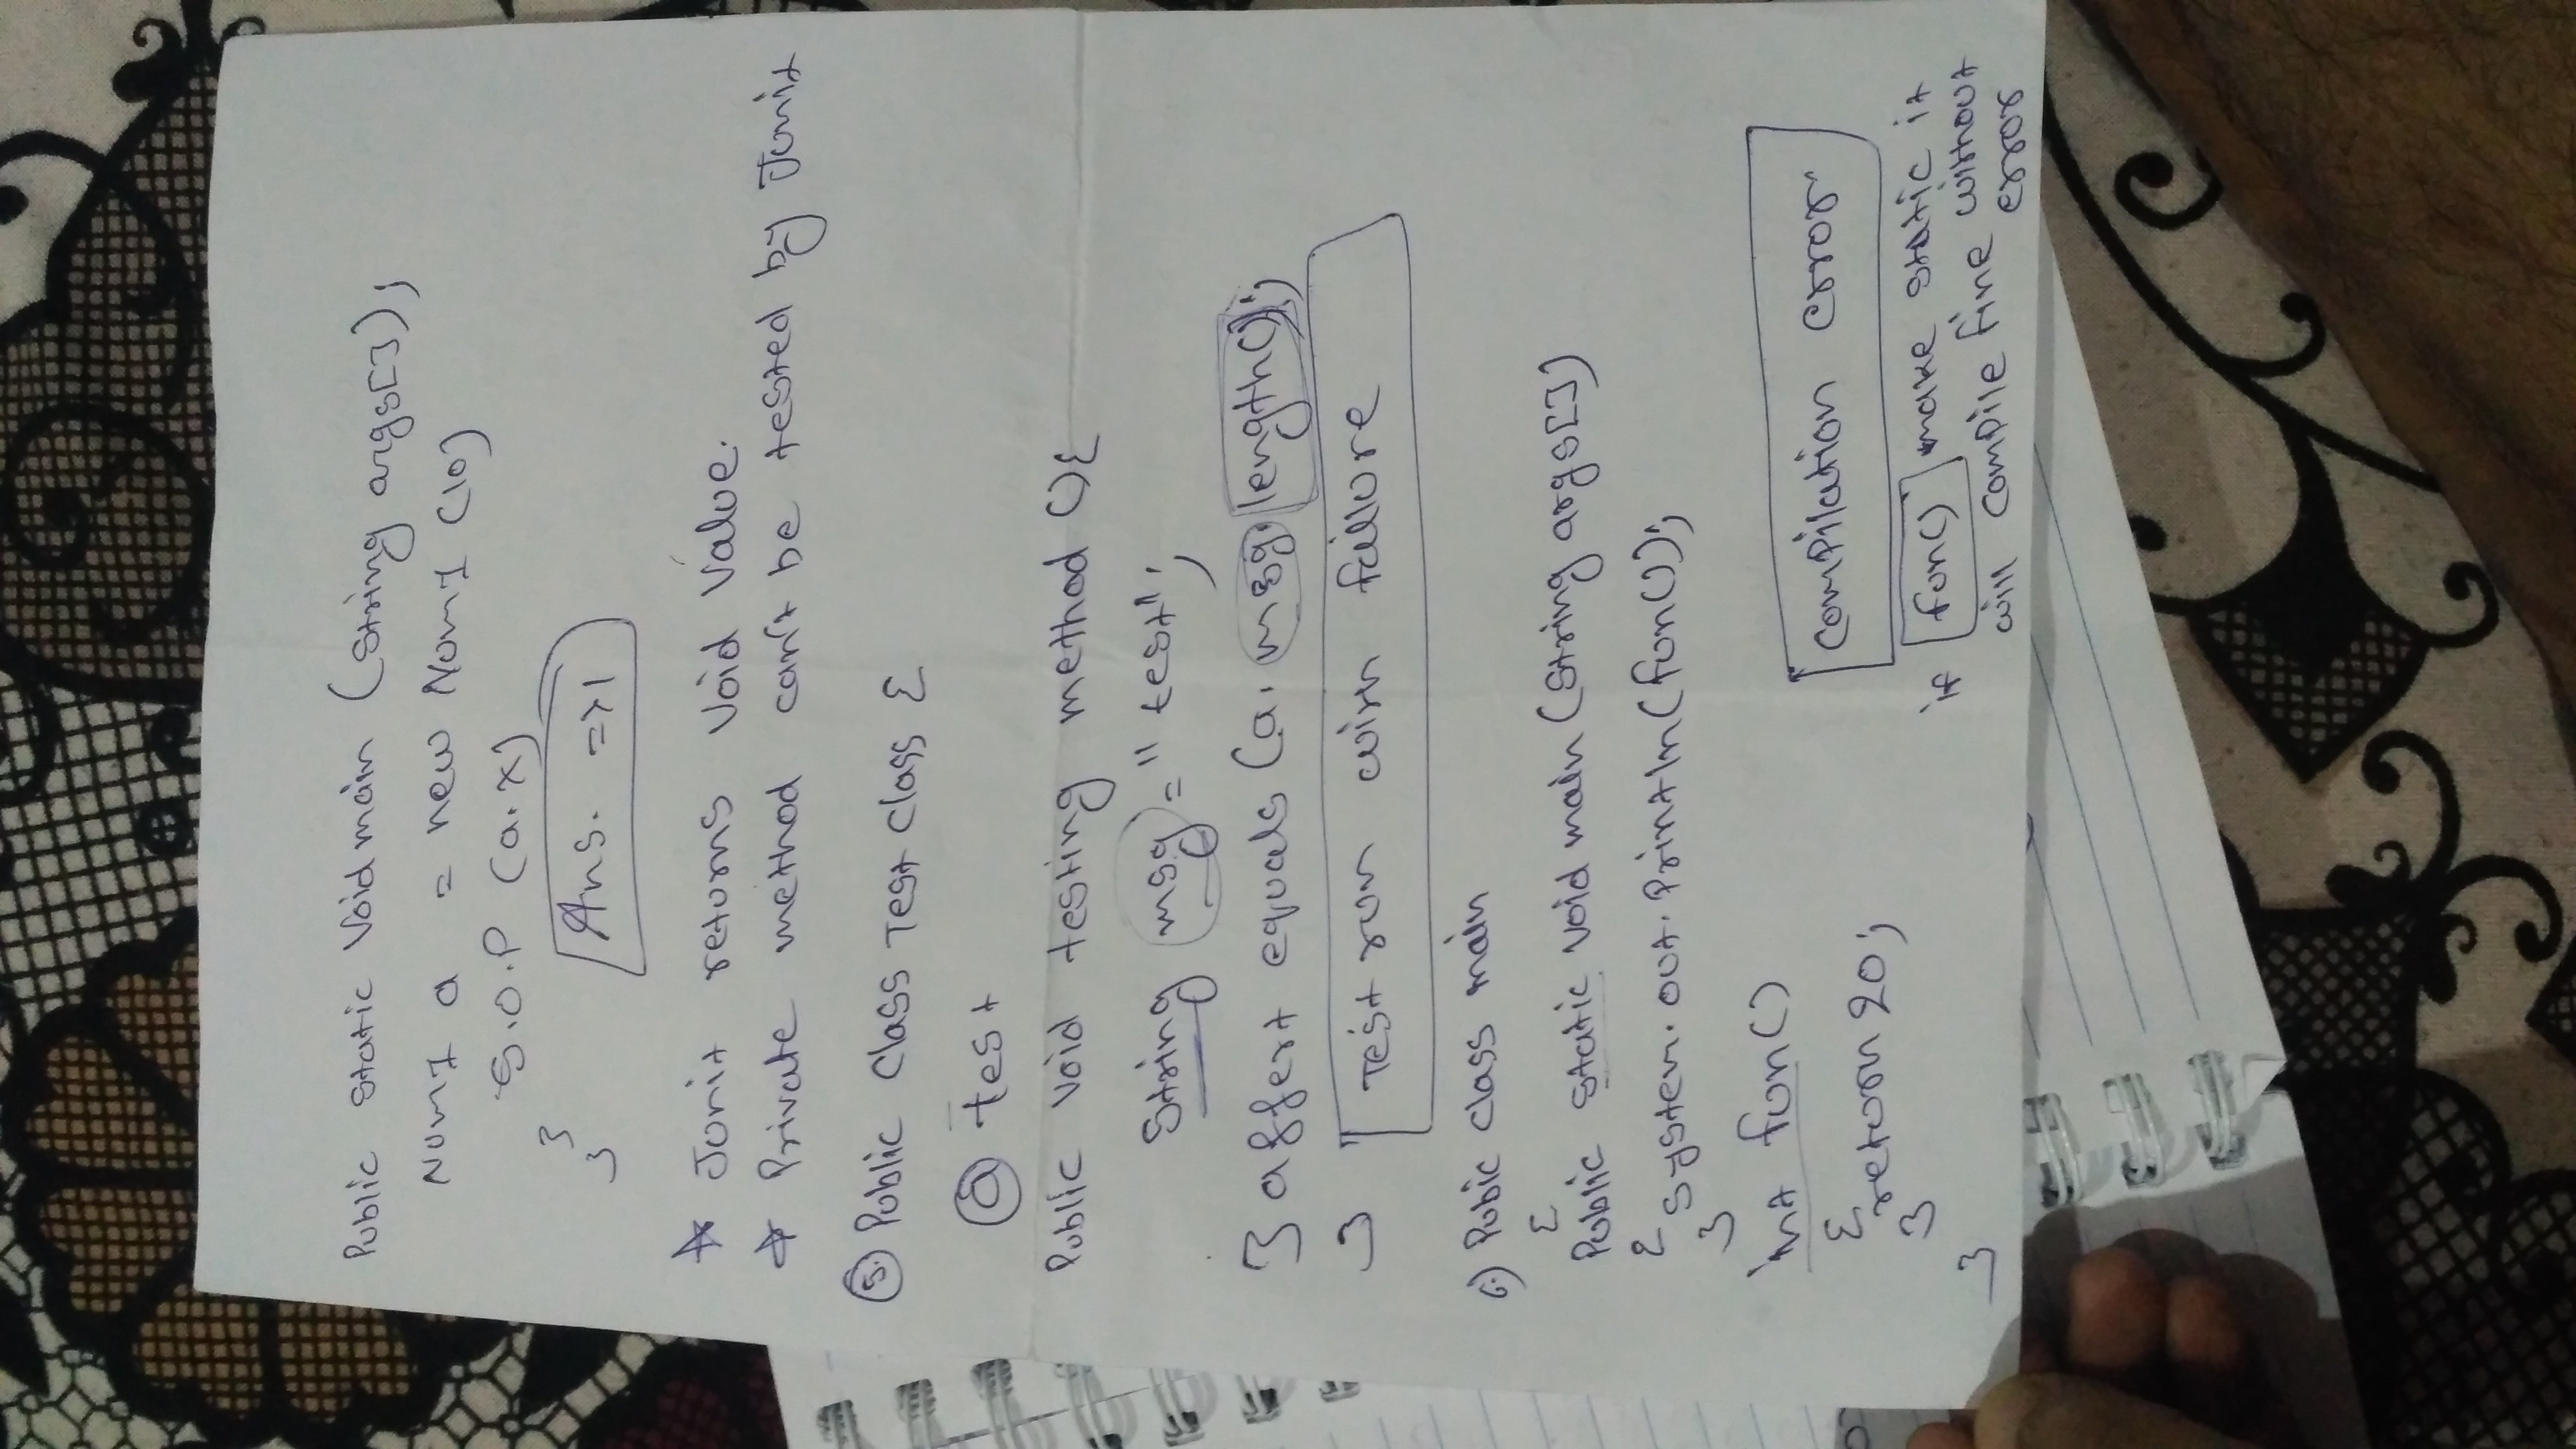 Public static Void main (String args[]);
Num1 a = new Num1 (10)
S.O.P (a.x)
}
}
Ans. => 1
* Junit returns Void Value.
* Private method can't be tested by Junit
(5.) Public Class Test Class {
@ test
Public Void testing method () {
String msg = "test";
} assert equals (a, msg.length());
}
"Test run with failure
(i) Public class main
{
Public static void main (String args[])
{ system.out.Println(fun());
}
int fun()
{
return 20;
}
}
"Compilation error"
if fun() make static it
will compile fine without
error